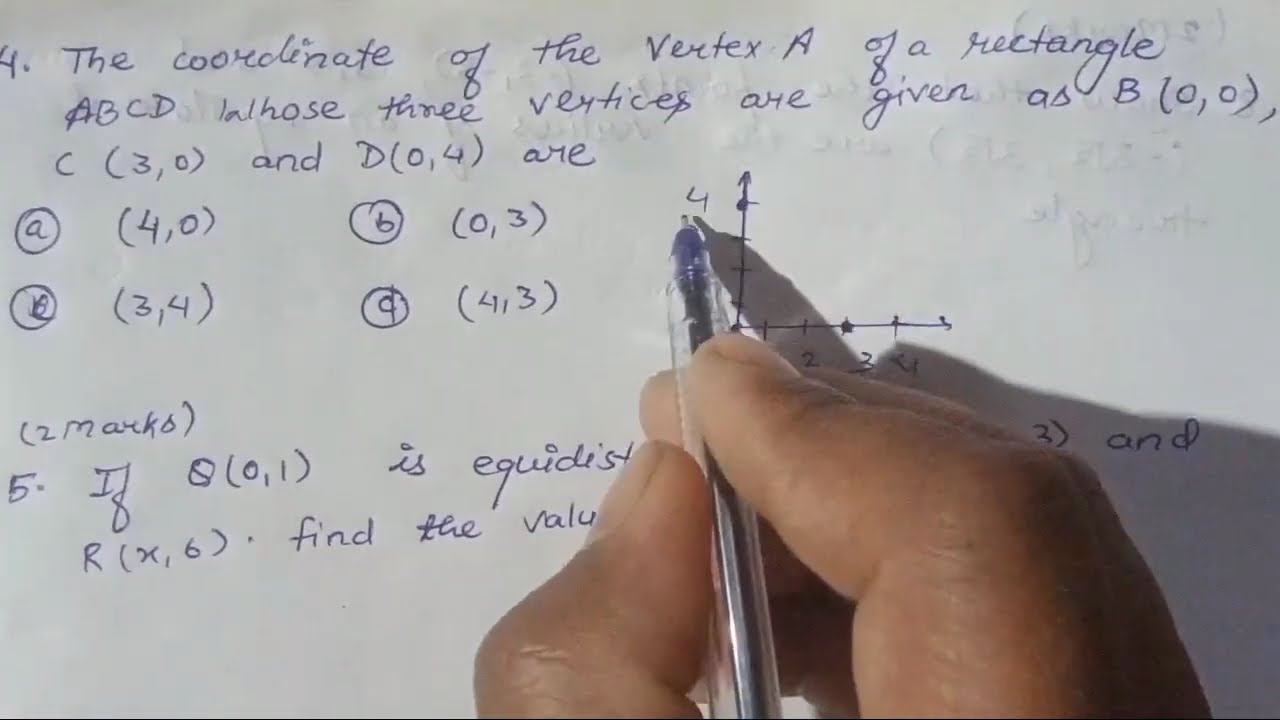 4. The coordinate of the vertex A of a rectangle
ABCD whose three vertices are given as B (0,0),
C (3,0) and D(0,4) are
a (4,0) b (0,3)
(3,4) d (4,3)
4
2 3 4
(2 marks)
5. If Q(0,1) is equidist 3) and
R(x,6). find the valu